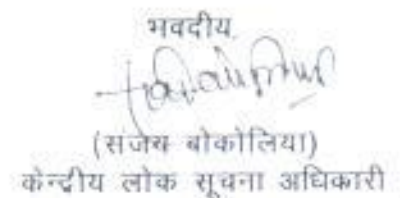 भवदीय
(संजय बोकोलिया)
केन्द्रीय लोक सूचना अधिकारी